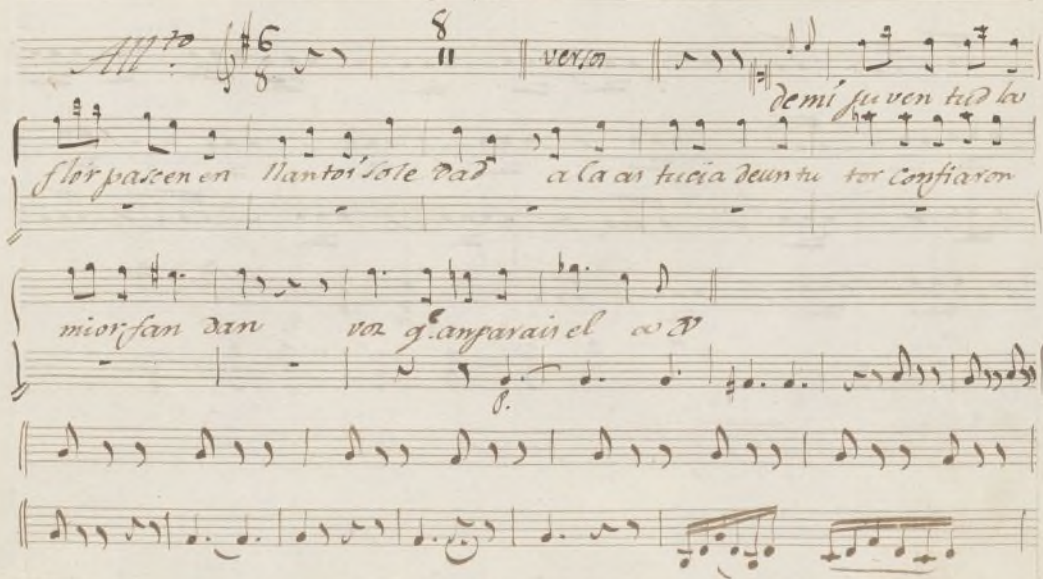 All.to 6 8 8 11 versos
de mi ju ven tud la
flor pasc en en llantoi sole dad a la as tucia de un tu tor Confiaron
mi or fan dan voz q.e anparais el
p.